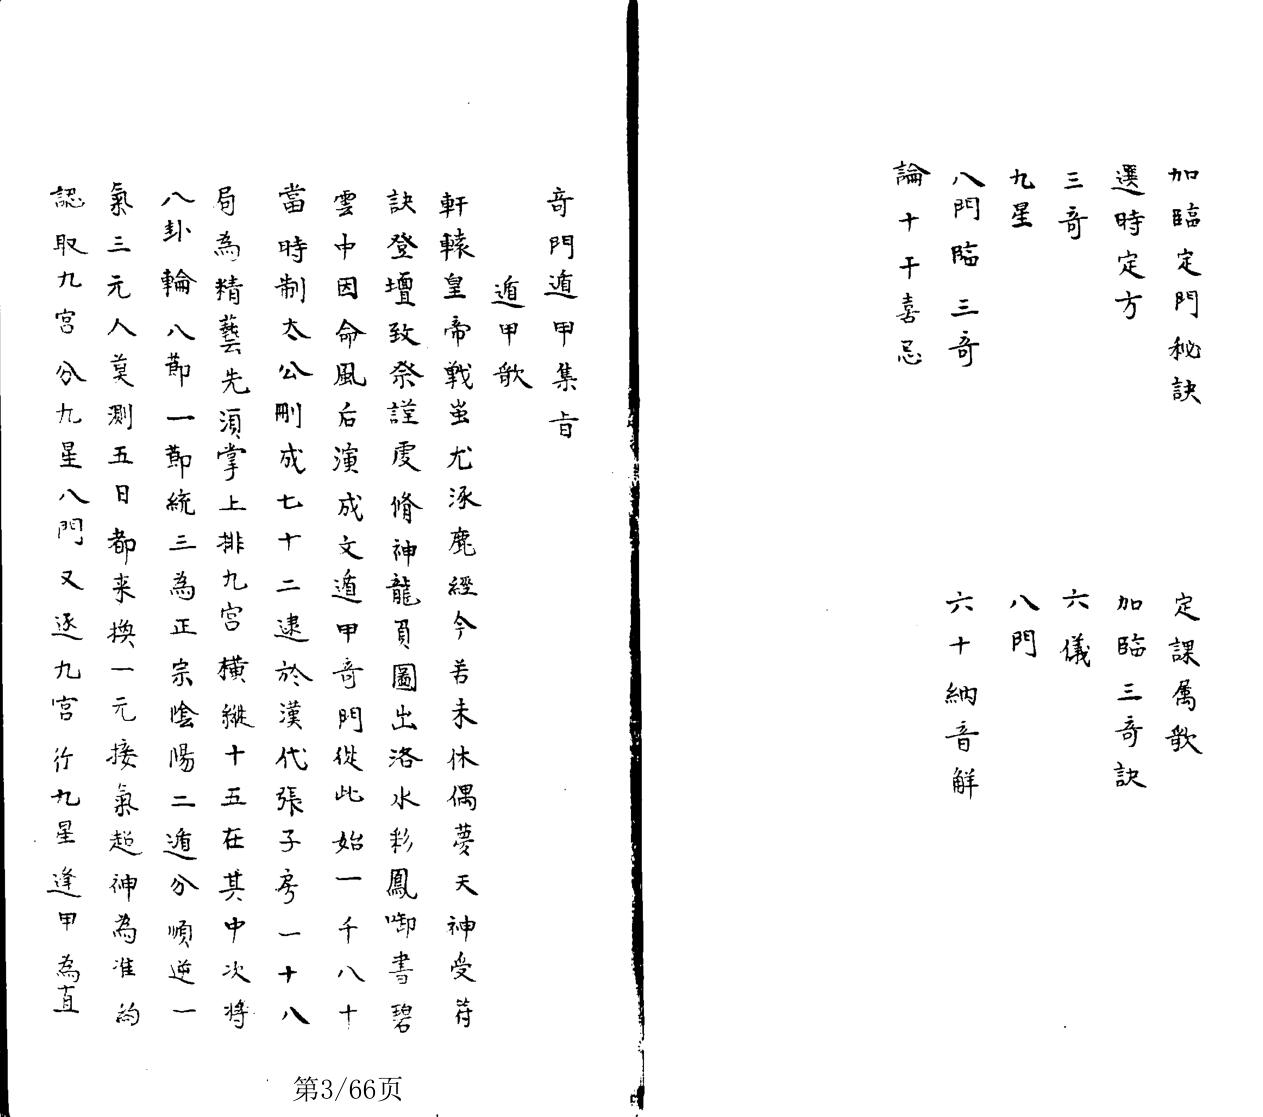 加臨定門秘訣
定課属歌
選時定方
加臨三奇訣
三奇
六儀
九星
八門
八門臨三奇
六十納音解
論十干喜忌
奇門遁甲集旨
遁甲歌
軒轅皇帝戰蚩尤涿鹿經今若未休偶夢天神受符
訣登壇致祭謹虔脩神龍負圖出洛水彩鳳啣書碧
雲中因命風后演成文遁甲奇門從此始一千八十
當時制太公刪成七十二逮於漢代張子房一十八
局為精藝先須掌上排九宮橫縱十五在其中次將
八卦輪八節一節統三為正宗陰陽二遁分順逆一
氣三元人莫測五日都来換一元接氣超神為准的
認取九宮分九星八門又逐九宮行九星逢甲為直
第3/66页